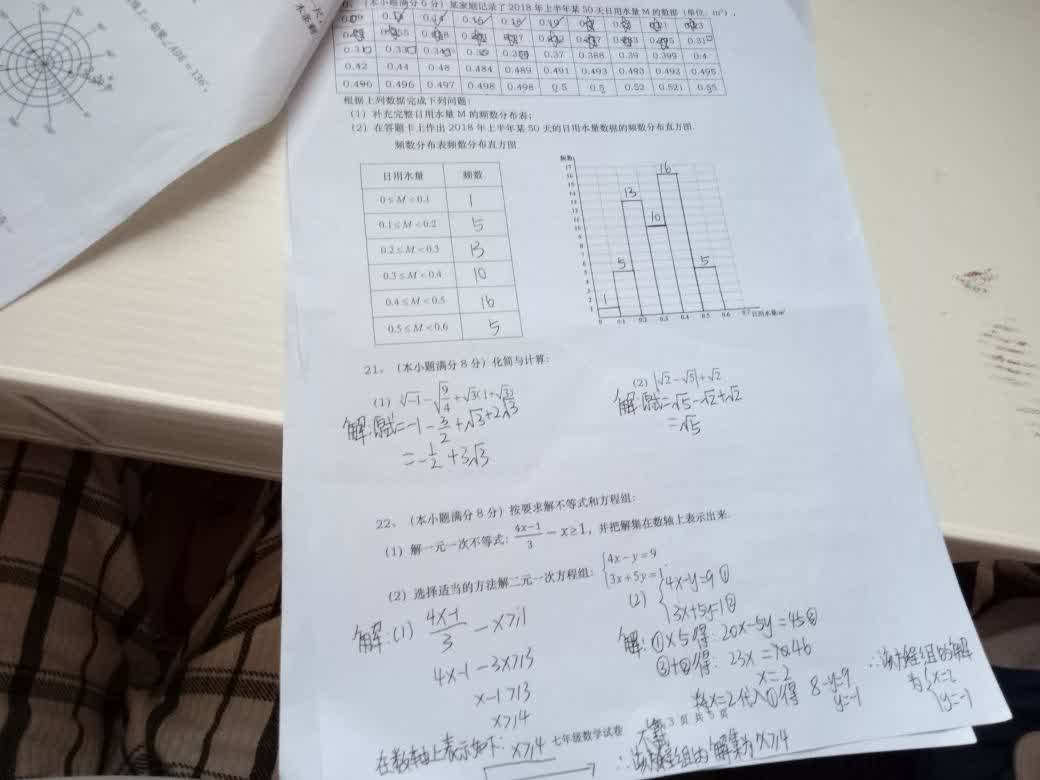 (本小题满分6分)某家庭记录了2018年上半年某50天日用水量M的数据(单位:m³),
0.37 0.388 0.39 0.399 0.4
0.42 0.44 0.48 0.484 0.489 0.491 0.493 0.493 0.493 0.495
0.496 0.496 0.497 0.498 0.498 0.5 0.5 0.52 0.521 0.55
根据上列数据完成下列问题:
(1)补充完整日用水量M的频数分布表;
(2)在答题卡上作出2018年上半年某50天的日用水量数据的频数分布直方图.
频数分布表频数分布直方图
日用水量 频数
0≤M<0.1 1
0.1≤M<0.2 5
0.2≤M<0.3 13
0.3≤M<0.4 10
0.4≤M<0.5 16
0.5≤M<0.6 5
频数
17
16
15
14
13
12
11
10
9
8
7
6
5
4
3
2
1
1 5 13 10 16 5
0 0.1 0.2 0.3 0.4 0.5 0.6 0.7 日用水量/m³
21、(本小题满分8分)化简与计算:
(1) ∛-1-√(9/4)+√3(1+√3)
解:原式=-1-3/2+√3+2√3
=-1/2+3√3
(2) |√2-√5|+√2
解:原式=√5-√2+√2
=√5
22、(本小题满分8分)按要求解不等式和方程组:
(1)解一元一次不等式:(4x-1)/3-x≥1,并把解集在数轴上表示出来.
(2)选择适当的方法解二元一次方程组:{4x-y=9
3x+5y=1
解:(1) (4x-1)/3-x≥1
4x-1-3x≥3
x-1≥3
x≥4
在数轴上表示如下: x≥4
(2) {4x-y=9①
3x+5y=1②
解:①×5得: 20x-5y=45③
③+②得: 23x=46
x=2
将x=2代入①得 8-y=9
y=-1
∴该方程组的解
为{x=2
y=-1
七年级数学试卷 第3页共5页
∴该方程组的解集为x≥4